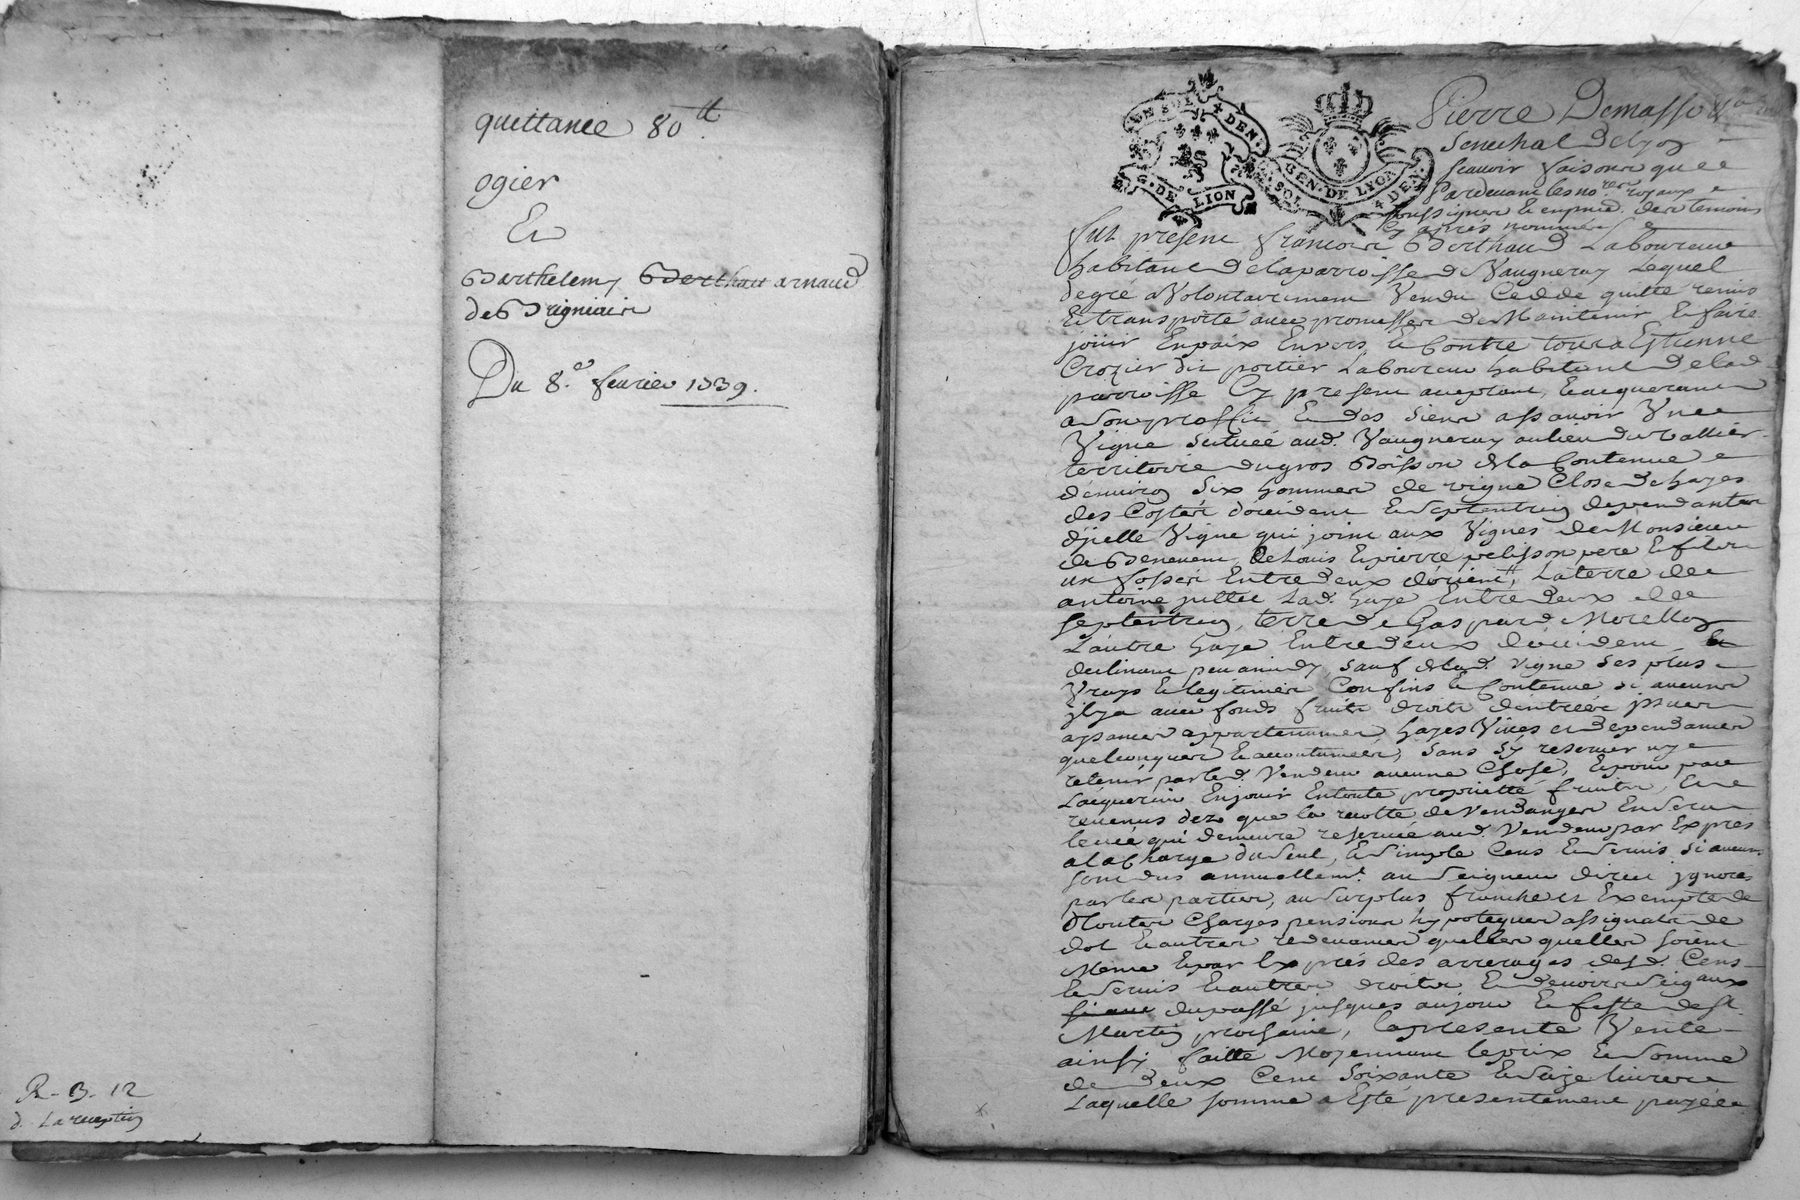 quittance 80tt
ogier
Et
Barthelemy Berthau arnaud
de Brigniair
Du 8.e feurier 1739.
R. B. 12
SOL
G. DE LION
DEN.
GEN. DE LYON
SOL
4 DEN.
Pierre Demasso
Senechal de Lyon
scauoir faisons que
Pardeuant les nores royaux
soussignes et en pnce des temoins
cy aprés nommes
fut present francois Berthaud Laboureur
habitant de la parroisse de Vaugneray Lequel
de gré a Volontairement Vendu Cedde quitte remis
Et transporté auec promesses de Maintenir Et faire
joüir En paix Enuers Et Contre tous a Estienne
Crozier dit portier Laboureur habitant de lad.
parroisse Cy present acceptant, Et acquerant
a son proffit Et des siens assauoir Vne
Vigne scituée aud. Vaugneray au lieu du Vallier
territoire du gros Boisson de la Contenue
d'enuiron six hommes de vigne Close de hayes
des Costés d'occident Et septentrion dependantes
d'jcelle Vigne qui joint aux Vignes de Monsieur
de Beneuent, de Louis Et pierre pelisson pere Et fils
un fossé Entre deux d'orient, La terre de
antoine jullie Lad. haye Entre deux de
septentrion, terre de Gaspard Morellon
L'autre haye Entre deux d'occident
declinant peu a midy sauf de lad. vigne ses plus
Vrays Et legitimes Confins Et Contenue si aucuns
jl y a auec fonds fruits droits d'entrées jssues
aysances appartenances hayes Viues et dependances
quelconques Et accoutumées, sans s'y reseruer ny
retenir par led. Vendeur aucune Chose, Et pour par
L'acquereur En joüir En toute proprietté fruits, Et
reuenus dez que la recolte de Vendanges En sera
leuée qui demeure reseruée aud. Vendeur par Exprés
a la Charge du seul, Et simple Cens Et seruis si aucuns
sont dus annuellemt. au seigneur direct jgnorés
par les parties, au surplus franche et Exempte de
Toutes Charges pensions hypoteques assignats de
dot Et autres redeuances quelles quelles soient
Meme Et par Exprés des arrerages desd. Cens
Et seruis Et autres droits Et deuoirs seigaux
du passé jusques au jour Et feste de St.
Martin prochaine, La presente Vente
ainsy faitte Moyennant le prix Et somme
de deux Cent soixante Et seize liures
Laquelle somme a Esté presentement payée